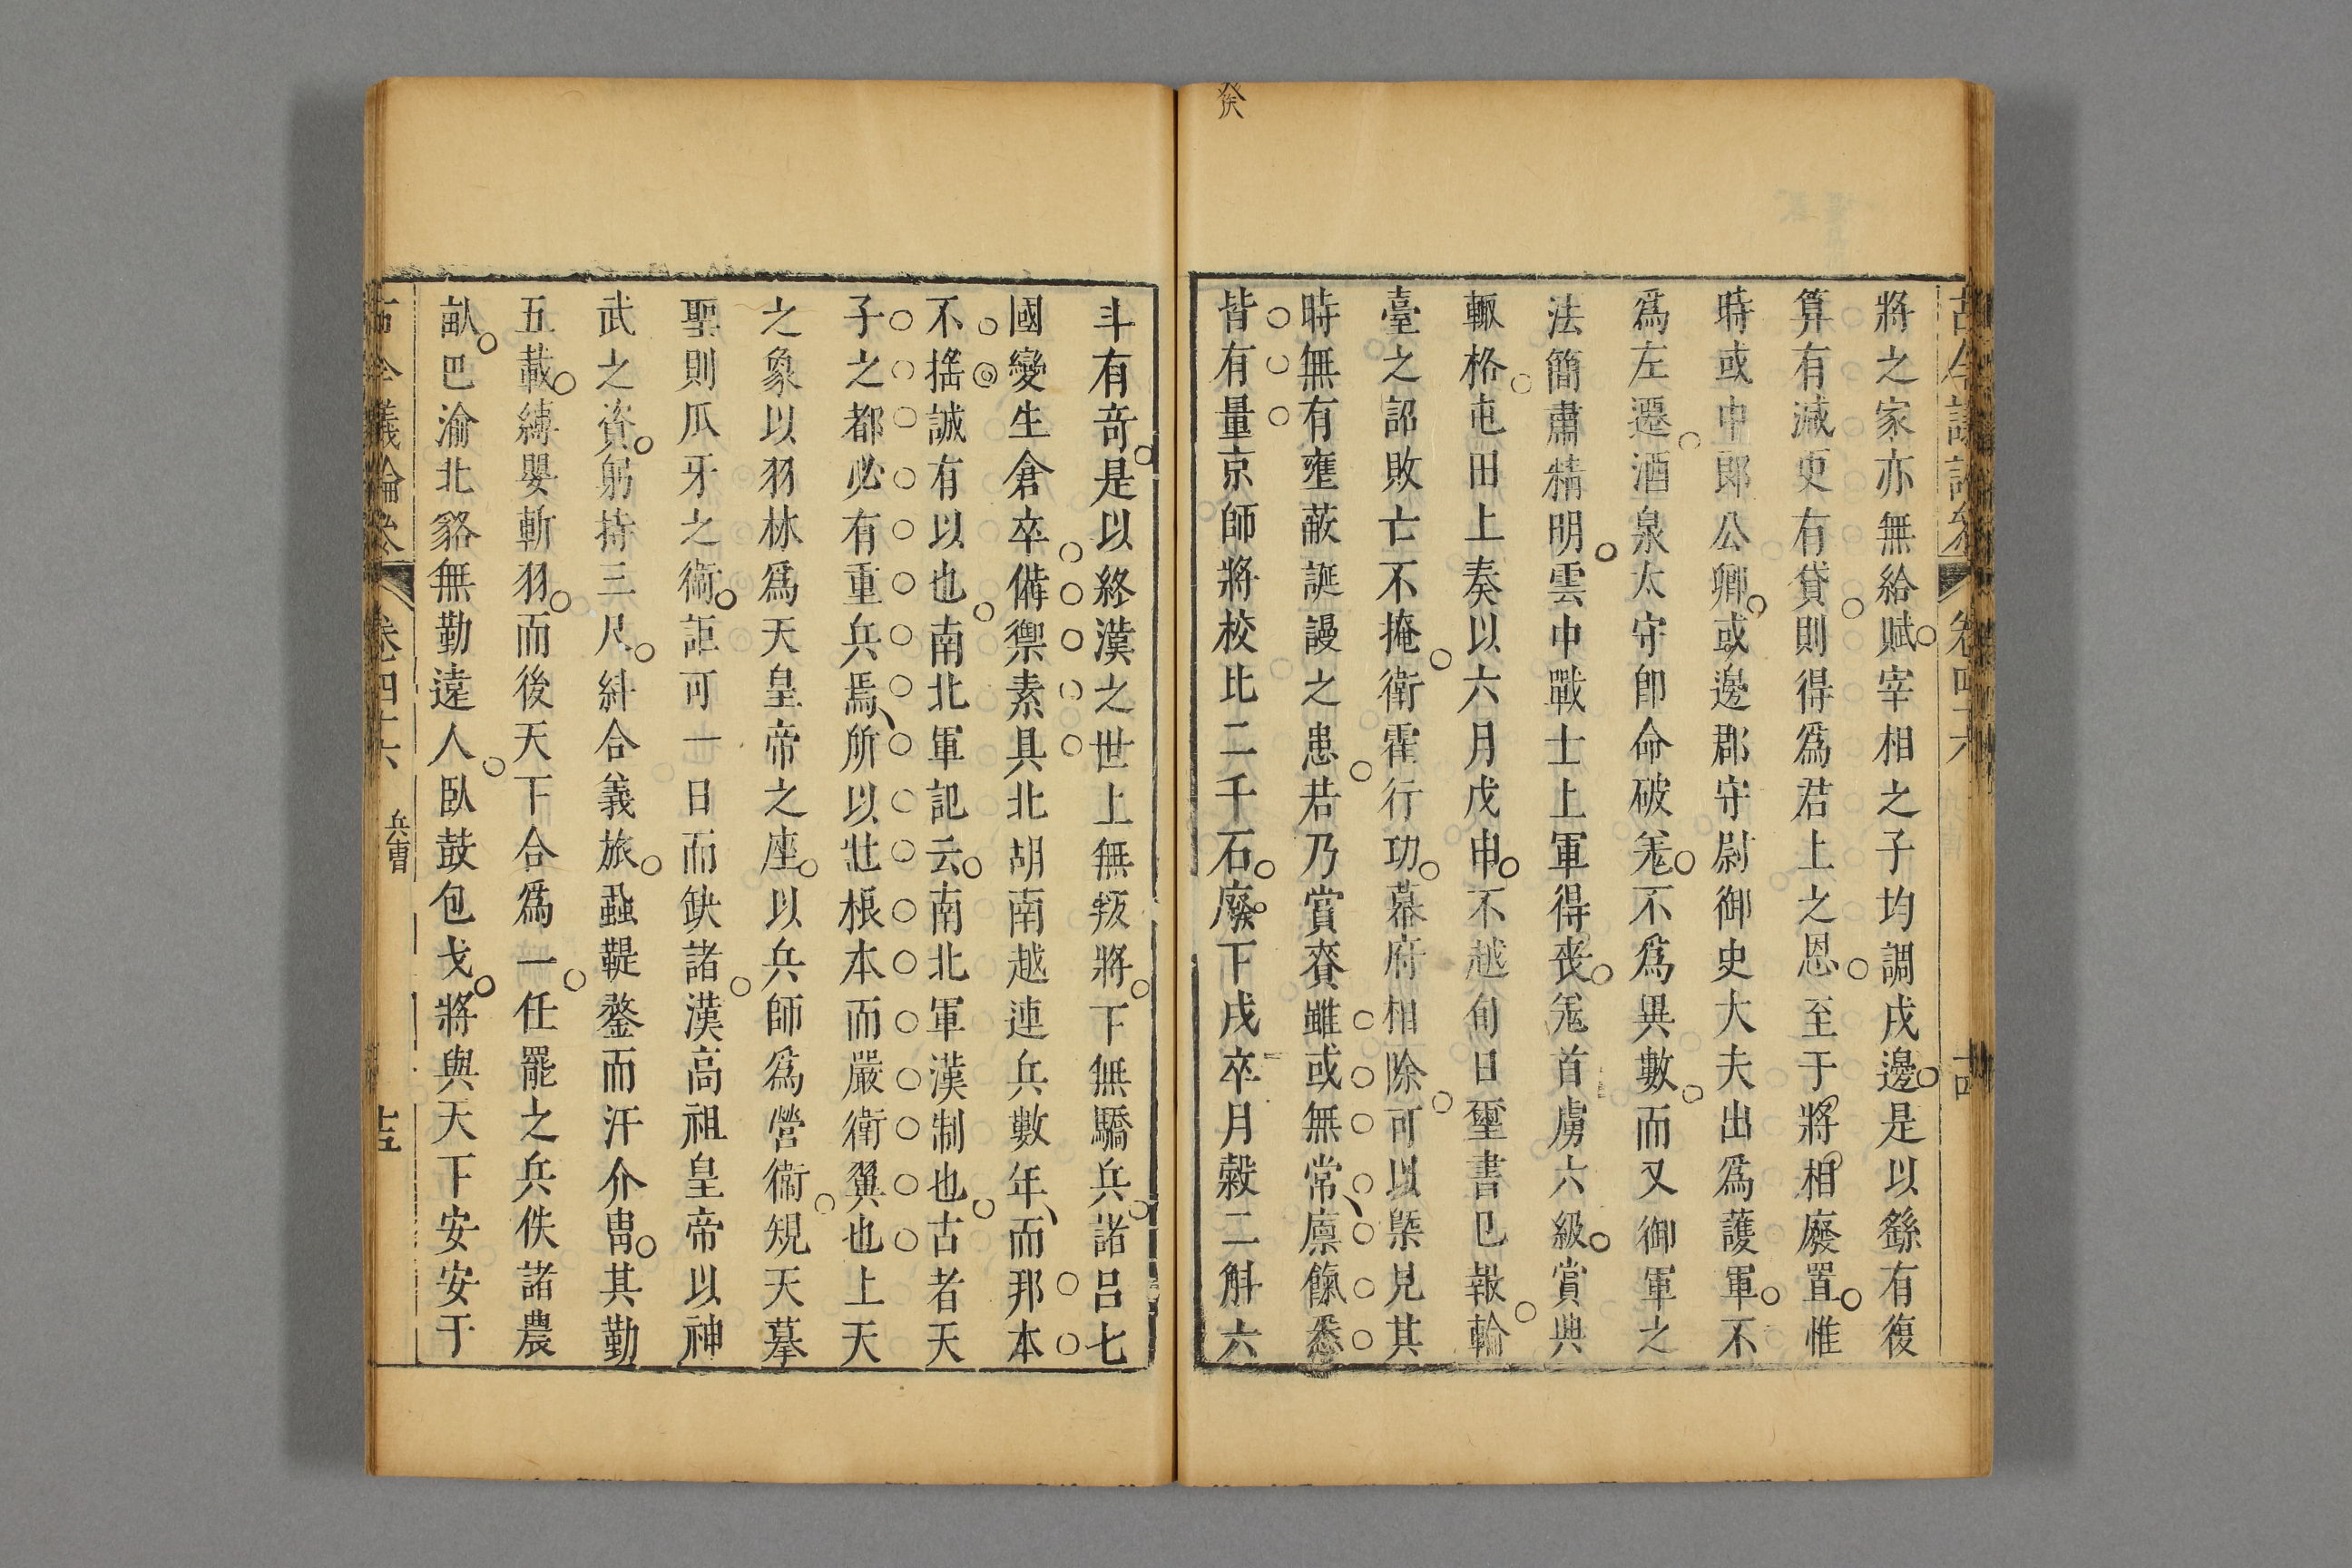 將之家亦無給賦宰相之子均調戌邊是以繇有復
算有減更有貸則得爲君上之恩至于將相廢置惟
時或中郎公卿或邊郡守尉御史大夫出爲護軍不
爲左遷酒泉太守卽命破羗不爲異數而又御軍之
法簡肅精明雲中戰士上軍得喪羗首虜六級賞典
輒格屯田上奏以六月戊申不越旬日璽書已報輪
臺之詔敗亡不掩衛霍行功幕府相除可以槩見其
時無有壅蔽誕謾之患若乃賞賚雖或無常廪餼悉
皆有量京師將校比二千石廢下戌卒月榖二斛六
斗有奇是以終漢之世上無叛將下無驕兵諸呂七
國變生倉卒備禦素具北胡南越連兵數年而邦本
不搖誠有以也南北軍記云南北軍漢制也古者天
子之都必有重兵焉所以壯根本而嚴衛翼也上天
之象以羽林爲天皇帝之座以兵師爲營衞規天摹
聖則爪牙之衞詎可一日而缺諸漢高祖皇帝以神
武之資躬持三尺糾合義旅蝨鞮鍪而汗介冑其勤
五載縛嬰斬羽而後天下合爲一任罷之兵佚諸農
畝巴渝北貉無勤遠人臥鼓包戈將與天下安安于
古今議論叅 卷四十六 兵曹 十五